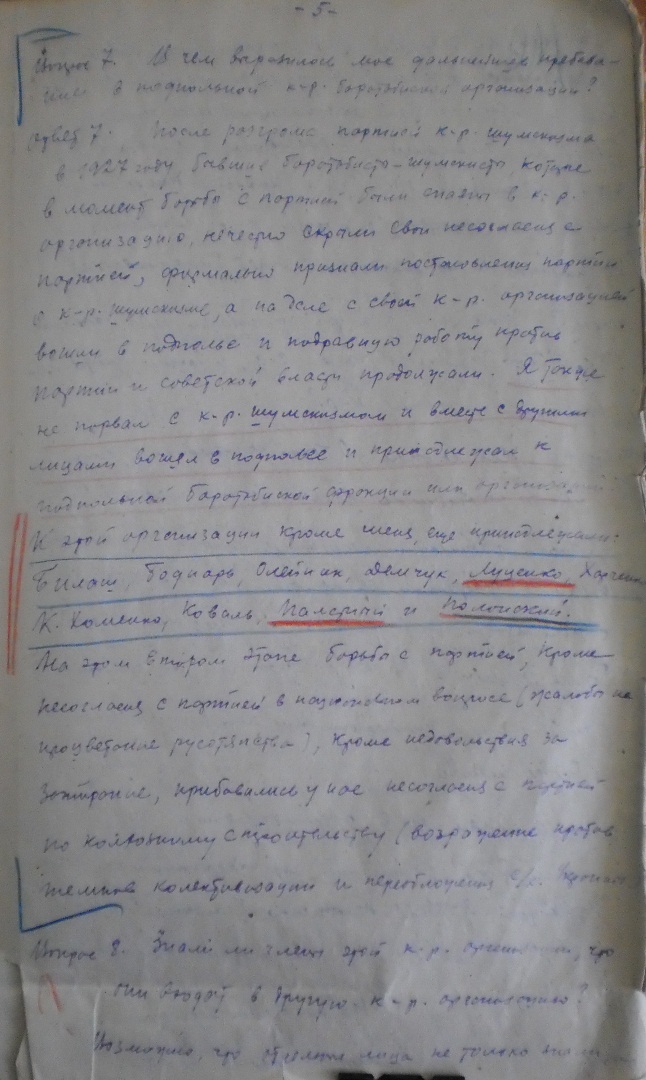 - 5 -
Вопрос 7. В чем выразилось мое дальнейшее пребыва-
ние в подпольной к-р. боротбиской организации?
Ответ 7. После разгрома партией к-р. шумскизма
в 1927 году, бывшие боротбисты-шумскисты которые
в момент борьбы с партией были спаяны в к-р.
организацию, нечестно скрыли свои несогласия с
партией, формально признали постановления партии
о к-р. шумскизме, а на деле с своей к-р. организацией
вошли в подполье и подрывную работу против
партии и советской власти продолжали. Я также
не порвал с к-р. шумскизмом и вместе с другими
лицами вошел в подполье и принадлежал к
подпольной боротбиской фракции или организации
К этой организации кроме меня, еще принадлежали:
Билаш, Боднарь, Олейник, Демчук, Луценко,
К. Хоменко, Коваль, и Полонский.
На этом втором этапе борьбы с партией, кроме
несогласия с партией в национальном вопросе (жалобы на
процветание русотяпства), кроме недовольствия за
прибавились у нас несогласия с партией
по колхозному строительству (возражение против
темпов колективизации и переобложения
Вопрос 8. Знали ли члены этой к-р. организации, что
они входят в другую к-р. организацию?
Возможно, что отдельные лица не только знали,